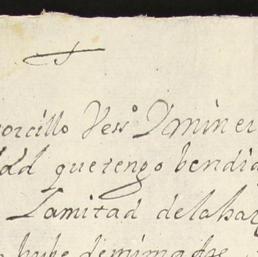 orcillo Vess.º Y miner
dad que tengo bendid
La mitad de la haz
hube de mi madre